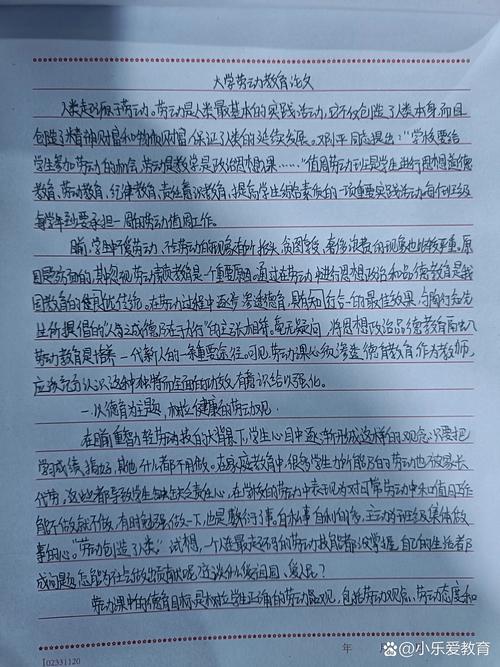 大学劳动教育论文
人类起源于劳动。劳动是人类最基本的实践活动,它不仅创造了人类本身而且
创造了精神财富和物质财富,保证了人类的延续发展。邓小平同志提出:"学校要给
学生参加劳动的机会,劳动是教学是政治思想课……"值周劳动班是学生进行思想道德
教育,劳动教育,纪律教育,责任意识教育,提高学生综合素质的一项重要实践活动,每个班级
每学年都要承担一周的劳动值周工作。
目前,学生中不爱劳动,不珍惜劳动的现象有所抬头,贪图享受,奢侈浪费的现象也比较严重。原
因是多方面的,其中忽视劳动素质教育是一个重要原因。通过在劳动中进行思想政治和品德教育是我
国教育的优良传统。在劳动过程中逐步渗透德育,具有知行合一的最佳效果,与陶行知先
生所提倡的"人力成德尽在于行"的主张相符。毫无疑问,将思想政治品德教育寓于
劳动教育是培养一代新人的一条重要途径。可见,劳动课心须渗透德育教育,作为教师,
应该充分认识这种独特而全面的功效,有意识给以强化。
一、以德育为主题,树立健康的劳动观。
在目前重智力轻劳动技能的大背景下,学生心目中逐渐形成这样的观念:只要把
学习成绩搞好,其他什么都不用做。在家庭教育中,很多学生力所能及的劳动也被家长
代劳,这些都导致学生缺乏责任心,在学校的劳动中表现为对日常劳动和值日工作
能不做就不做,有时勉强做一下,也是敷衍了事。自私事自利的多,主动为班级集体做
事的心。"劳动创造了人类"。试想,一个人连最起码的劳动技能都没掌握,自己的生活都
成问题,怎能为社会做出贡献呢?还谈什么爱祖国,爱人民?
劳动课中的德育目标是树立学生正确的劳动品观,包括劳动观念、劳动态度和
I02331120
年 月
@小乐爱教育